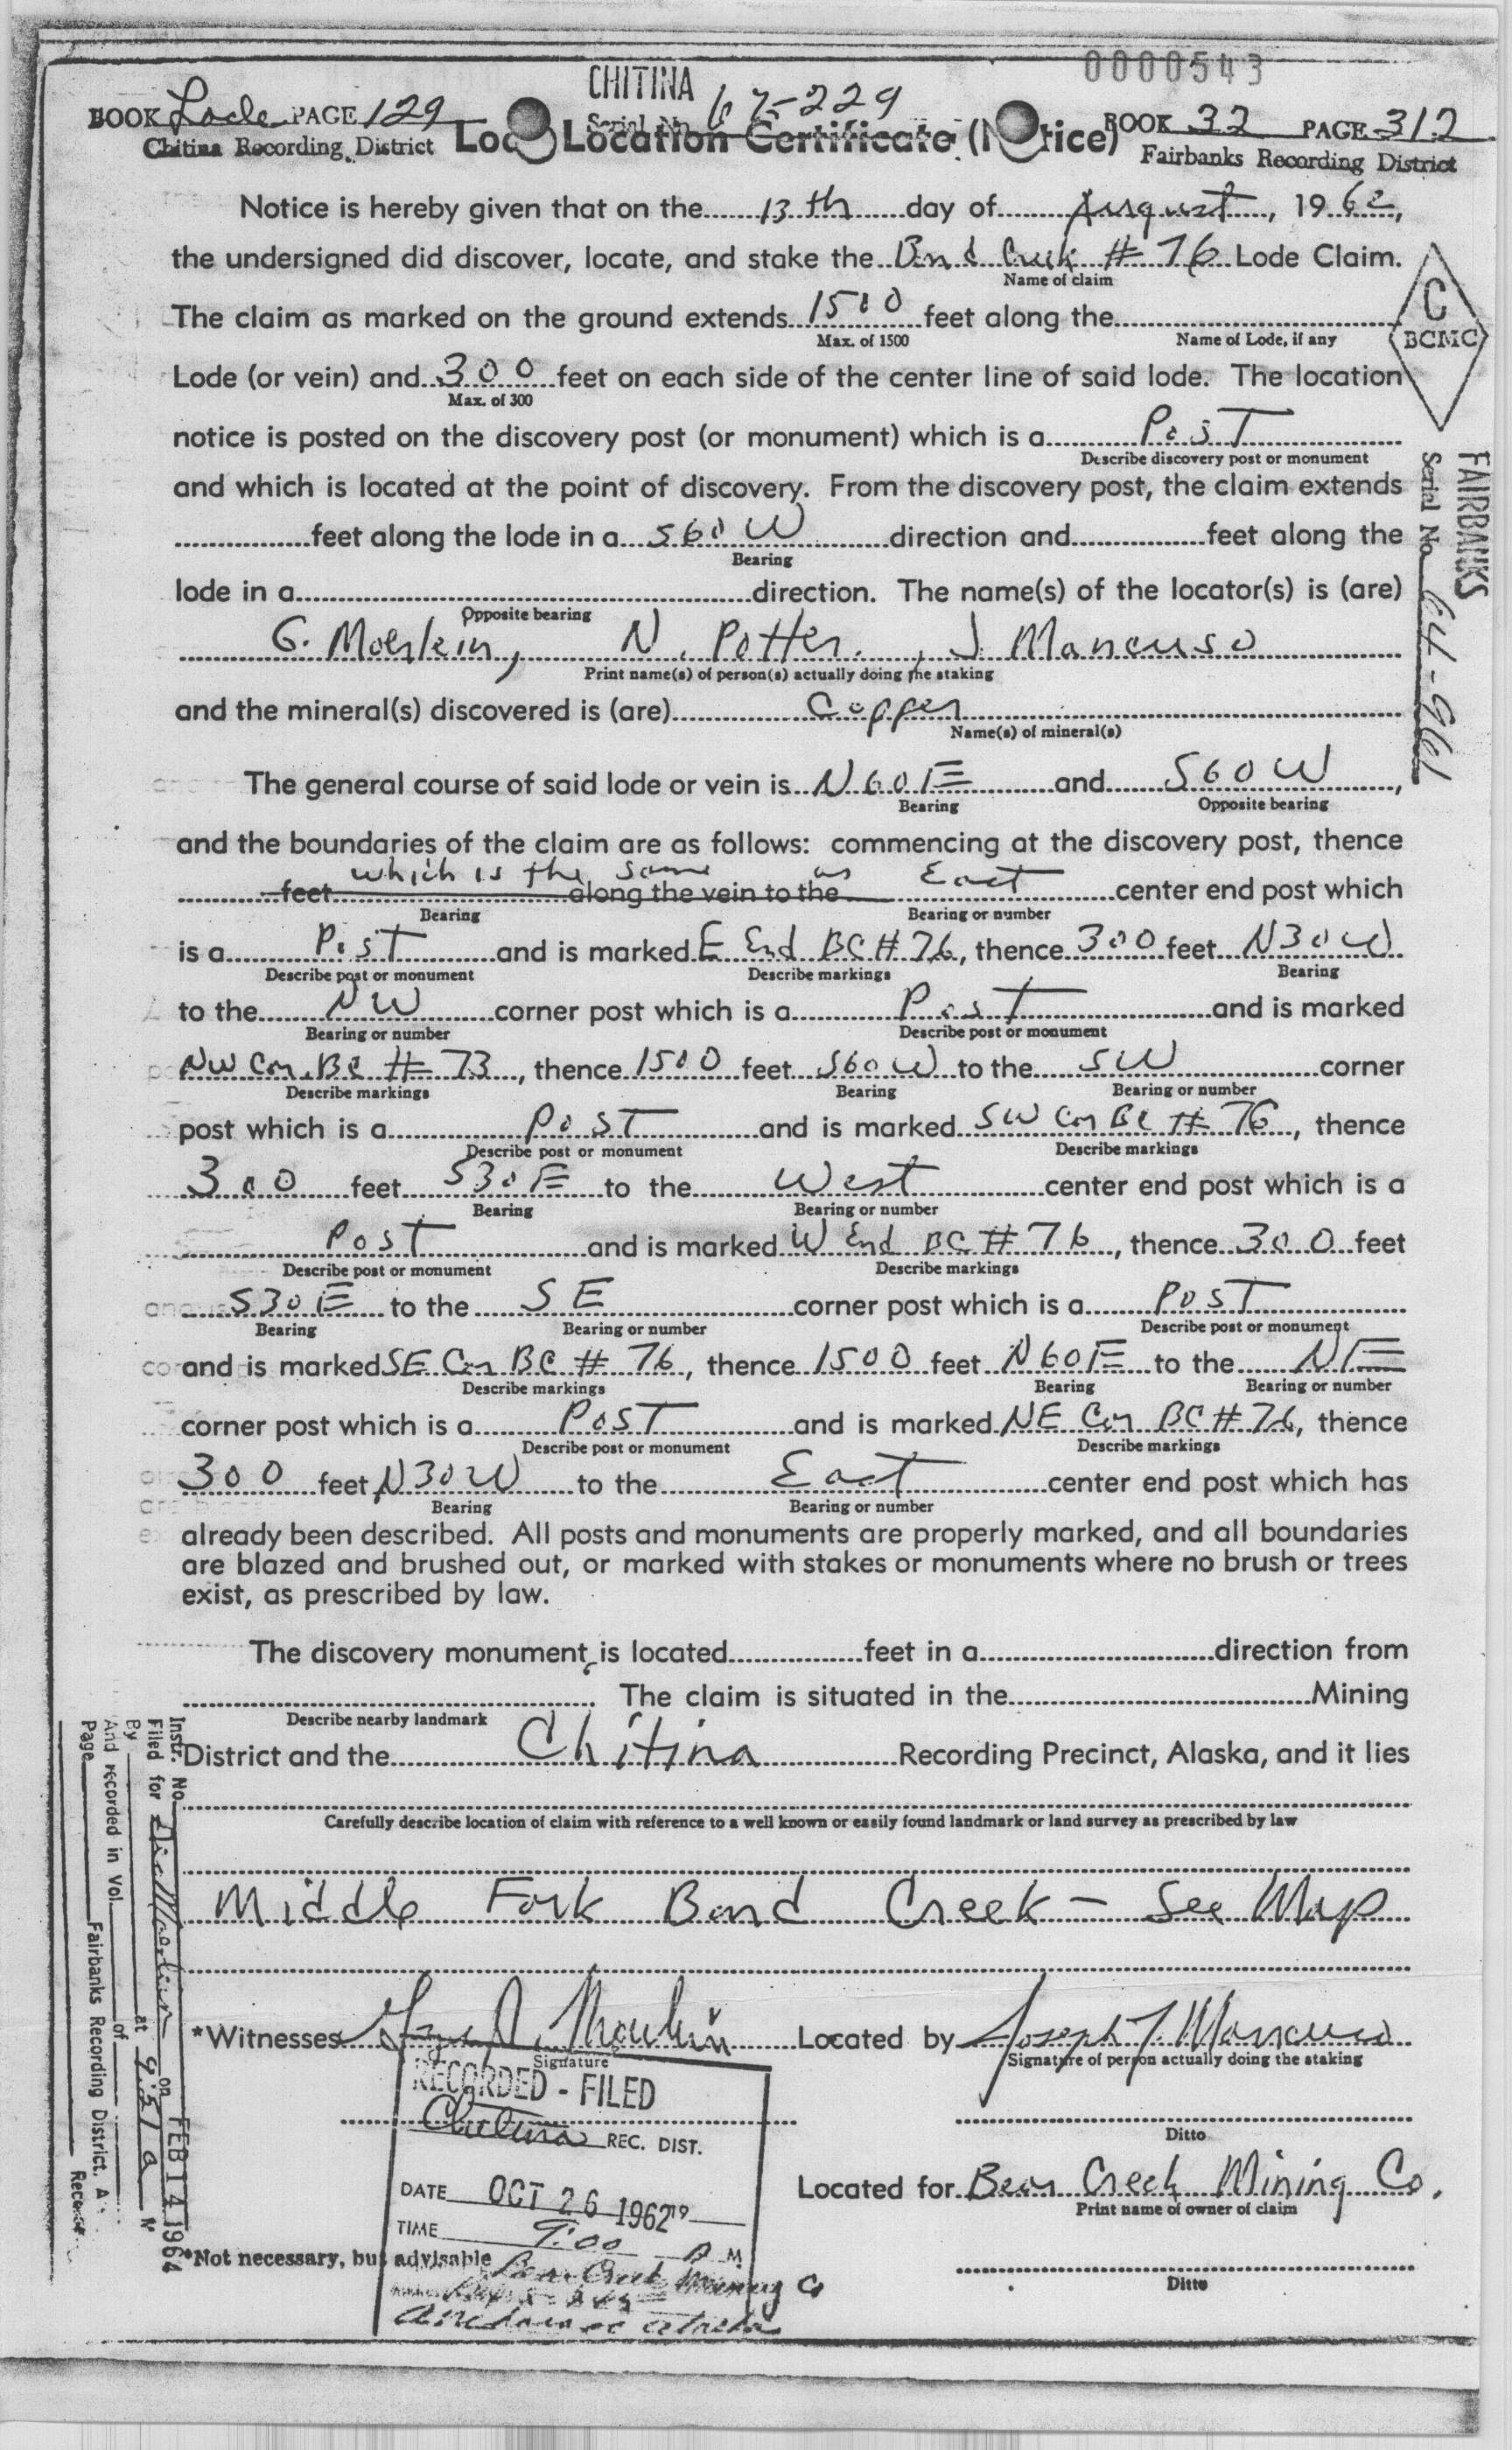 0000543
CHITINA
Serial No. 67-229
BOOK Lode PAGE 129
Chitina Recording District
Location Certificate (Notice)
BOOK 32 PAGE 312
Fairbanks Recording District
Notice is hereby given that on the 13th day of August, 1962,
the undersigned did discover, locate, and stake the Bond Creek # 76 Lode Claim.
Name of claim
The claim as marked on the ground extends 1500 feet along the
Max. of 1500 Name of Lode, if any
C
BCMC
Lode (or vein) and 300 feet on each side of the center line of said lode. The location
Max. of 300
notice is posted on the discovery post (or monument) which is a Post
Describe discovery post or monument
and which is located at the point of discovery. From the discovery post, the claim extends
feet along the lode in a S60W direction and feet along the
Bearing
lode in a direction. The name(s) of the locator(s) is (are)
Opposite bearing
G. Moerlein, N. Potter, J Mancuso
Print name(s) of person(s) actually doing the staking
and the mineral(s) discovered is (are) Copper
Name(s) of mineral(s)
FAIRBANKS
Serial No. 64-961
The general course of said lode or vein is N60E and S60W,
Bearing Opposite bearing
and the boundaries of the claim are as follows: commencing at the discovery post, thence
which is the same as East
feet along the vein to the center end post which
Bearing Bearing or number
is a Post and is marked E End BC # 76, thence 300 feet N30W
Describe post or monument Describe markings Bearing
to the NW corner post which is a Post and is marked
Bearing or number Describe post or monument
NW Cor. BC # 73, thence 1500 feet S60W to the SW corner
Describe markings Bearing Bearing or number
post which is a Post and is marked SW Cor BC # 76, thence
Describe post or monument Describe markings
300 feet S30E to the West center end post which is a
Bearing Bearing or number
Post and is marked W End BC # 76, thence 300 feet
Describe post or monument Describe markings
S30E to the SE corner post which is a Post
Bearing Bearing or number Describe post or monument
and is marked SE Cor BC # 76, thence 1500 feet N60E to the NE
Describe markings Bearing Bearing or number
corner post which is a Post and is marked NE Cor BC # 76, thence
Describe post or monument Describe markings
300 feet N30W to the East center end post which has
Bearing Bearing or number
already been described. All posts and monuments are properly marked, and all boundaries
are blazed and brushed out, or marked with stakes or monuments where no brush or trees
exist, as prescribed by law.
The discovery monument is located feet in a direction from
. The claim is situated in the Mining
Describe nearby landmark
District and the Chitina Recording Precinct, Alaska, and it lies
Carefully describe location of claim with reference to a well known or easily found landmark or land survey as prescribed by law
Middle Fork Bond Creek - See Map
*Witnesses
Signature
Located by Joseph J. Mancuso
Signature of person actually doing the staking
Ditto
RECORDED - FILED
Chitina REC. DIST.
DATE OCT 26 1962 19
TIME 9:00 A M
Bear Creek Mining Co
Located for Bear Creek Mining Co.
Print name of owner of claim
Ditto
*Not necessary, but advisable
Instr. No.
Filed for on FEB 14 1964
By at 9:51 a M
And recorded in Vol. of
Page Fairbanks Recording District,